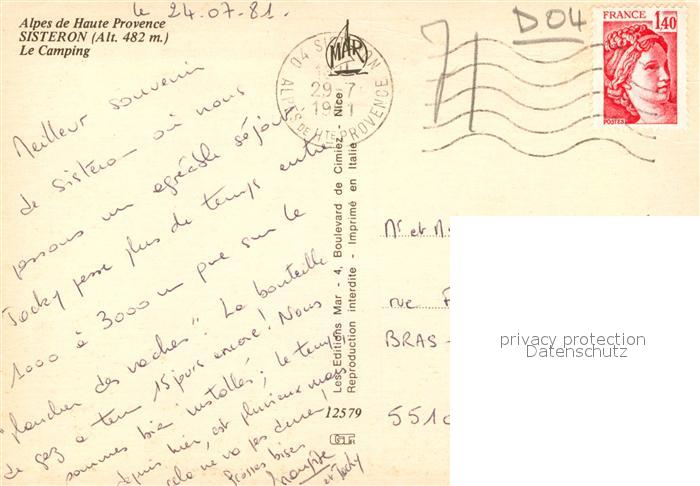 le 24.07.81.
Alpes de Haute Provence
SISTERON (Alt. 482 m.)
Le Camping
Meilleur souvenir
de Sisteron où nous
passons un agréable séjour
Jacky passe plus de temps entre
1000 à 3000 m que sur le
"plancher des vaches". La bouteille
de gaz a tenu 15 jours encore! Nous
sommes bien installés; le temps
depuis hier, est pluvieux mais
cela ne va pas durer,
Grosses bises
et Jacky
Less Editions Mar - 4, Boulevard de Cimiez, Nice
Reproduction interdite - Imprimé en Italie
12579
MAR
04 SISTERON
29-7
1981
ALPES DE HTE PROVENCE
D04
FRANCE
1,40
POSTES
Mr et M
rue F
BRAS -
551
privacy protection
Datenschutz